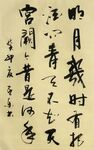 明月幾時有把
酒問青天不知天上
宮闕今昔是何年